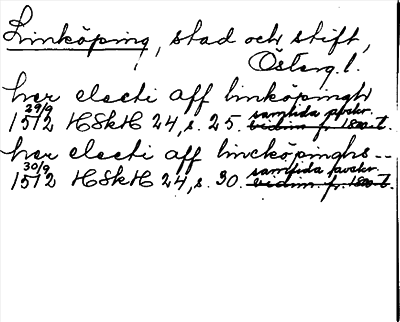 Linköping, stad och stift,
Österg l.
her electi aff linköpingh
29/9
1512 HSkH 24, s. 25. samtida avskr.
vidim f. 1500-t.
her electi aff lincköpinghs --
30/9
1512 HSkH 24, s. 30. samtida avskr.
vidim f. 1500-t.